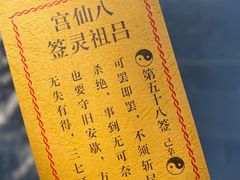 八仙宫
吕祖灵签
第五十八签 己辛
可罢即罢，不须斩
杀绝，事到无可奈
也要守旧安歇，方
无失有得，三七